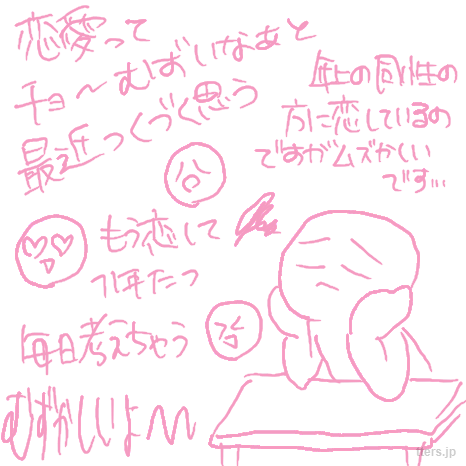 恋愛って
チョ〜むずいなあと
最近つくづく思う
年上の同性の
方に恋しているの
ですがムズかしい
です…
もう恋して
1年たつ
毎日考えちゃう
むずかしいよ〜
tters.jp